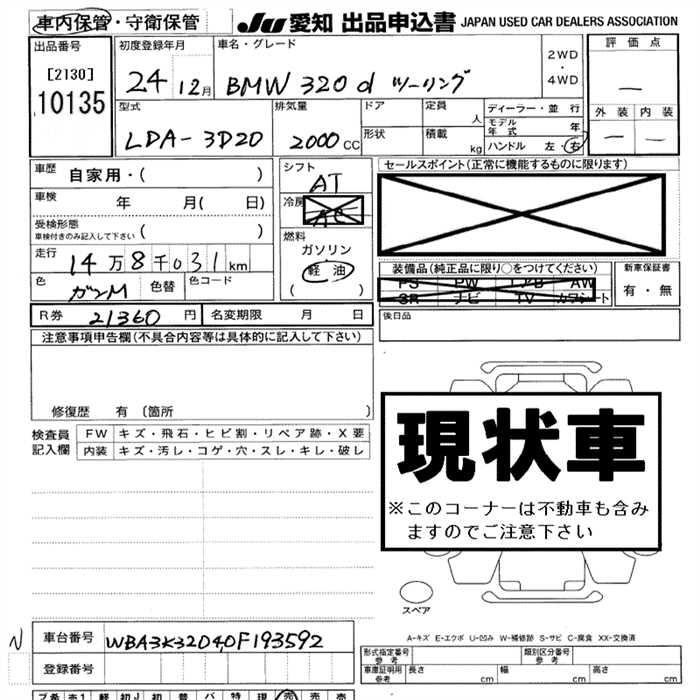 車内保管・守衛保管 JU 愛知 出品申込書 JAPAN USED CAR DEALERS ASSOCIATION
出品番号 初度登録年月 車名・グレード 評価点
[2130] 24 12月 BMW 320d ツーリング 2WD・4WD —
10135 外装 内装
型式 排気量 ドア 定員 人 ディーラー・並行
モデル年式 年
LDA-3D20 2000CC 形状 積載 kg ハンドル 左 右 — —
車歴 自家用・( ) シフト AT セールスポイント(正常に機能するものに限ります)
車検 年 月( 日) 冷房 AC
受検形態 ( ) 燃料
車検付きのみ記入して下さい ガソリン
走行 14万8千031km 軽油 装備品(純正品に限り○をつけてください) 新車保証書
色 ガンM 色替 色コード ( ) PS PW エアB AW 有・無
SR ナビ TV カワシート
R券 21360円 名変期限 月 日 後日品
注意事項申告欄(不具合内容等は具体的に記入して下さい)
修復歴 有 (箇所 )
検査員 FW キズ・飛石・ヒビ割・リペア跡・X要
記入欄 内装 キズ・汚レ・コゲ・穴・スレ・キレ・破レ
現状車
※このコーナーは不動車も含み
ますのでご注意下さい
スペア
A-キズ E-エクボ U-凹み W-補修跡 S-サビ C-腐食 XX-交換済
N 車台番号 WBA3K32040F193592
型式指定番号 参考 類別区分番号 参考
登録番号 車庫証明用 参考 長さ cm 幅 cm 高さ cm